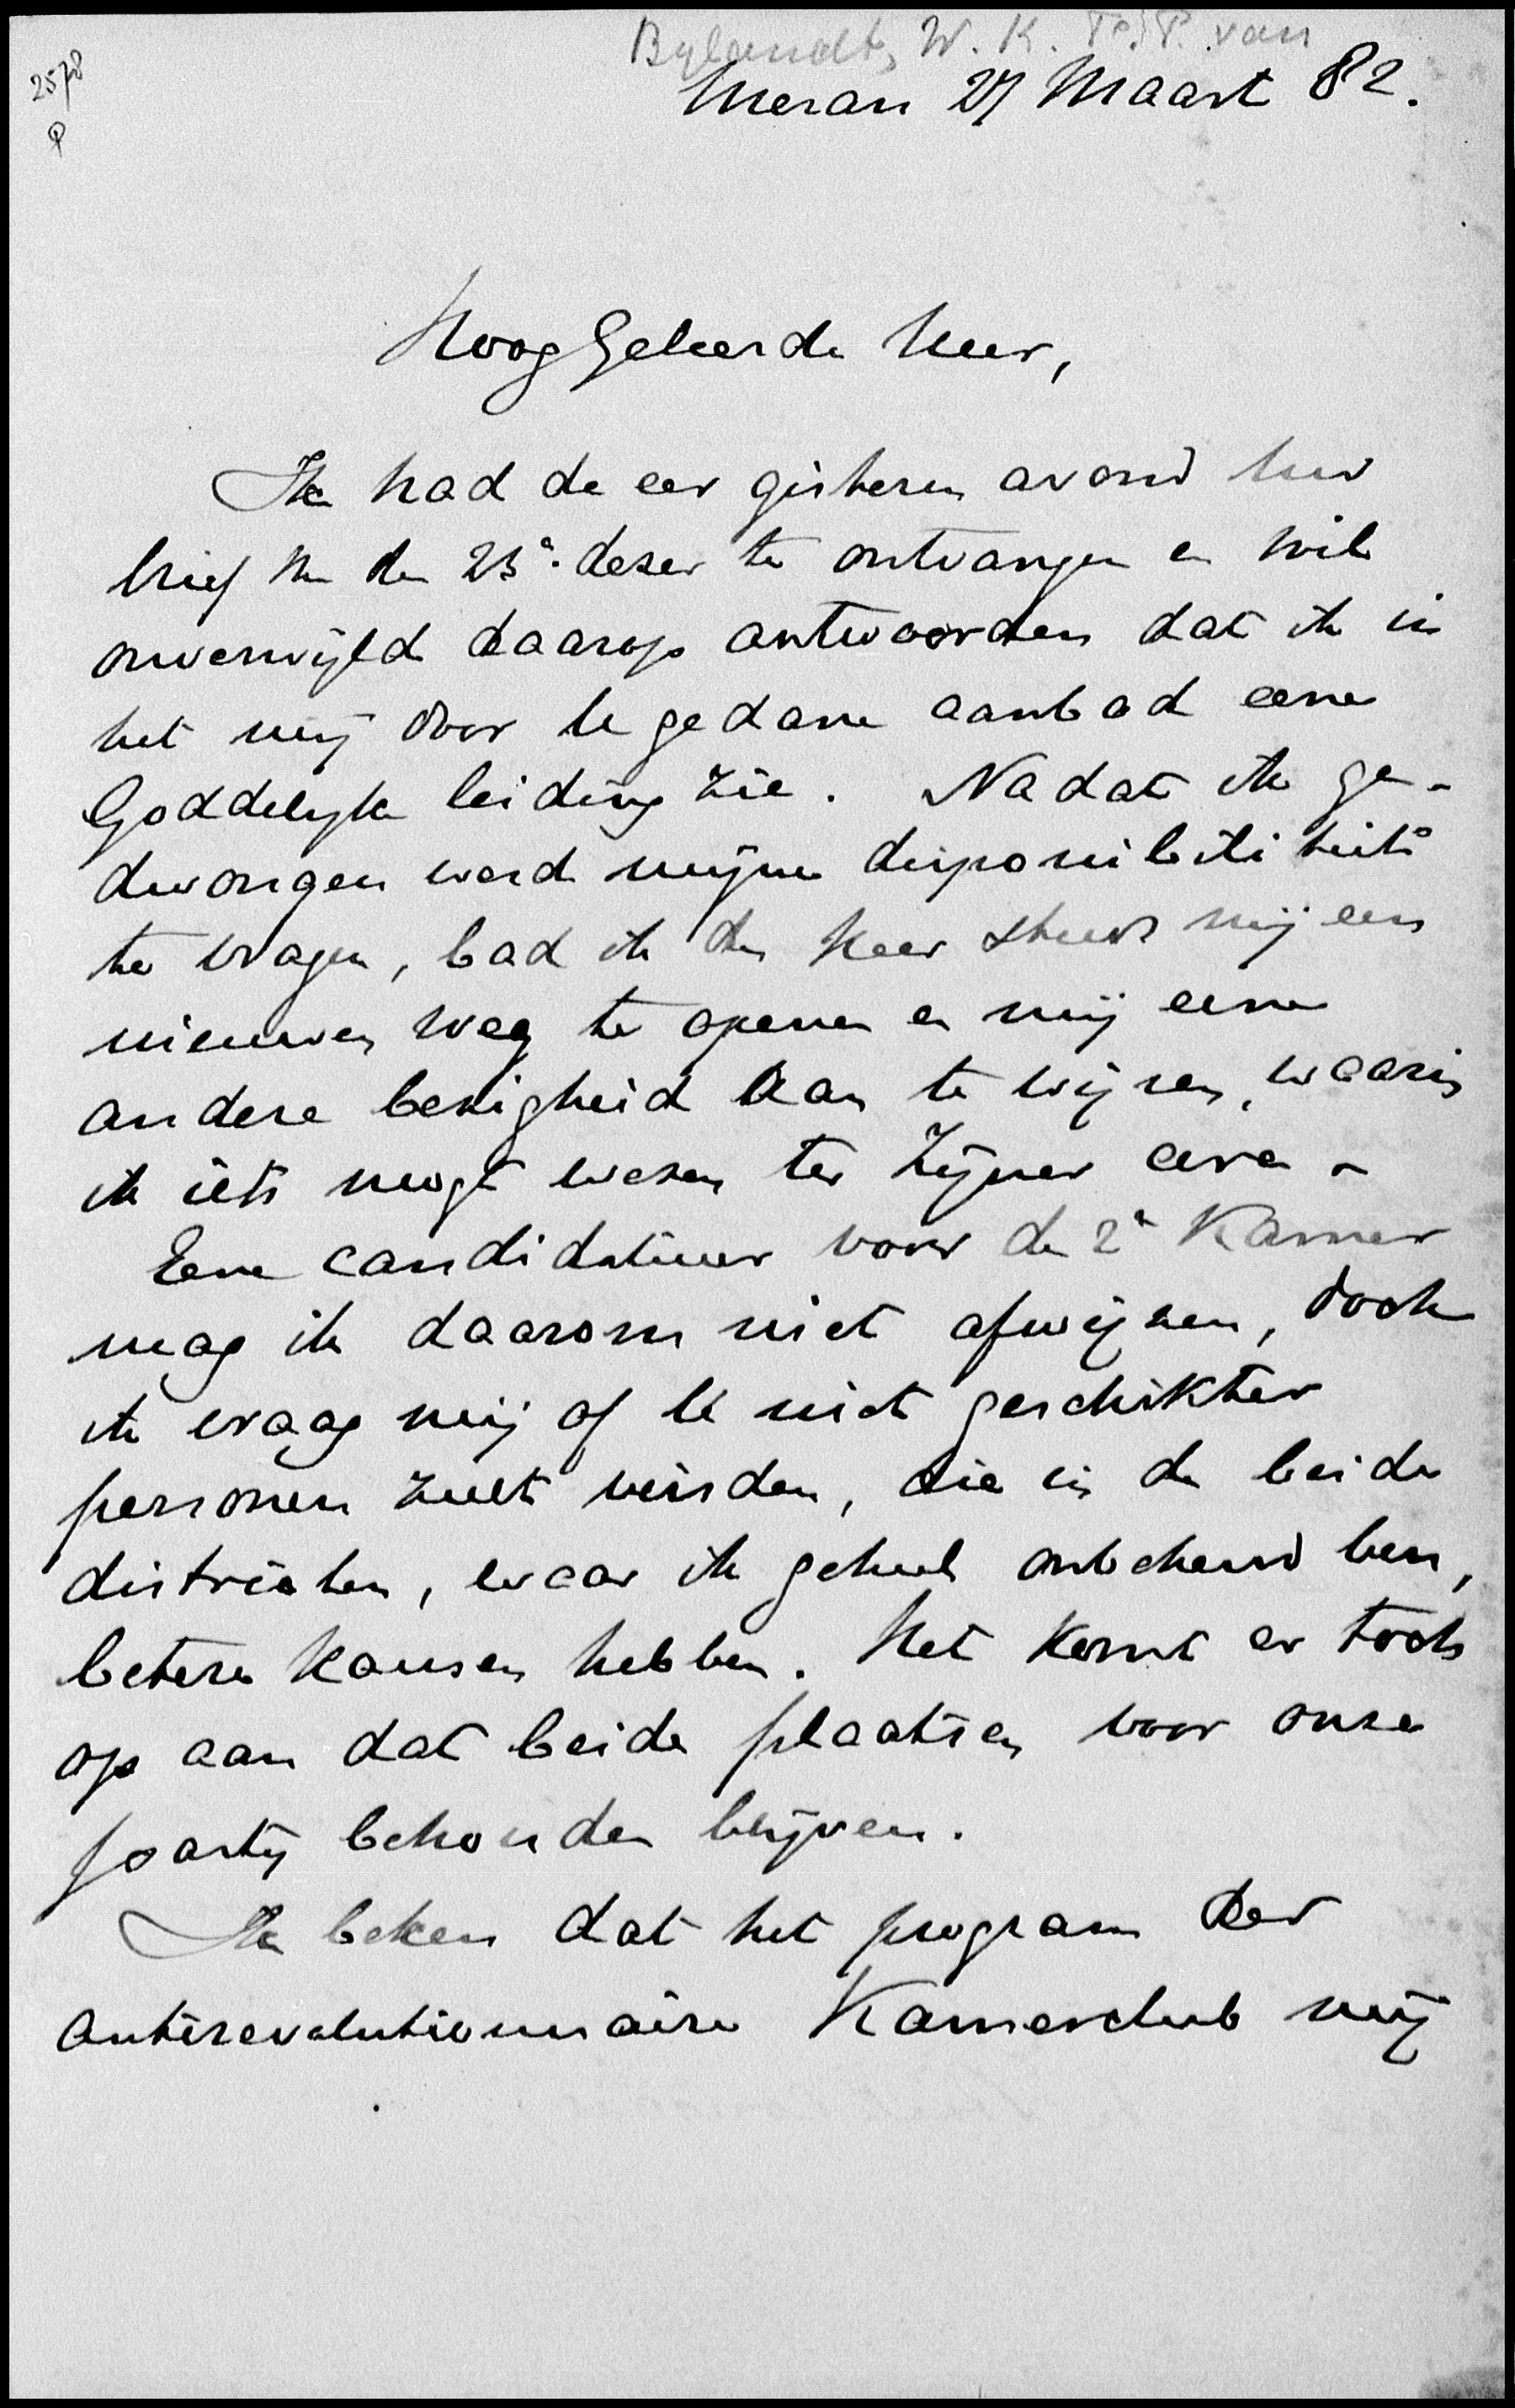 Bylandt, W. K. F. P. van
2578
P
Meran 27 Maart 82.
HoogGeleerde Heer,
Ik had de eer gisteren avond Uw
brief van den 23e. dezer te ontvangen en wil
onverwijld daarop antwoorden dat ik in
het mij door U gedane aanbod eene
Goddelijke leiding zie. Nadat ik ge-
dwongen werd mijne disponibiliteit
te vragen, bad ik den Heer steeds mij een
nieuwen weg te openen en mij eene
andere bezigheid aan te wijzen, waarin
ik iets mogt wezen ter Zijner eere -
Eene candidatuur voor de 2e Kamer
mag ik daarom niet afwijzen, doch
ik vraag mij of U niet geschikter
personen zult vinden, die in de beide
districten, waar ik geheel onbekend ben,
betere kansen hebben. Het komt er toch
op aan dat beide plaatsen voor onze
partij behouden blijven.
Ik beken dat het program der
antirevolutionnaire Kamerclub mij